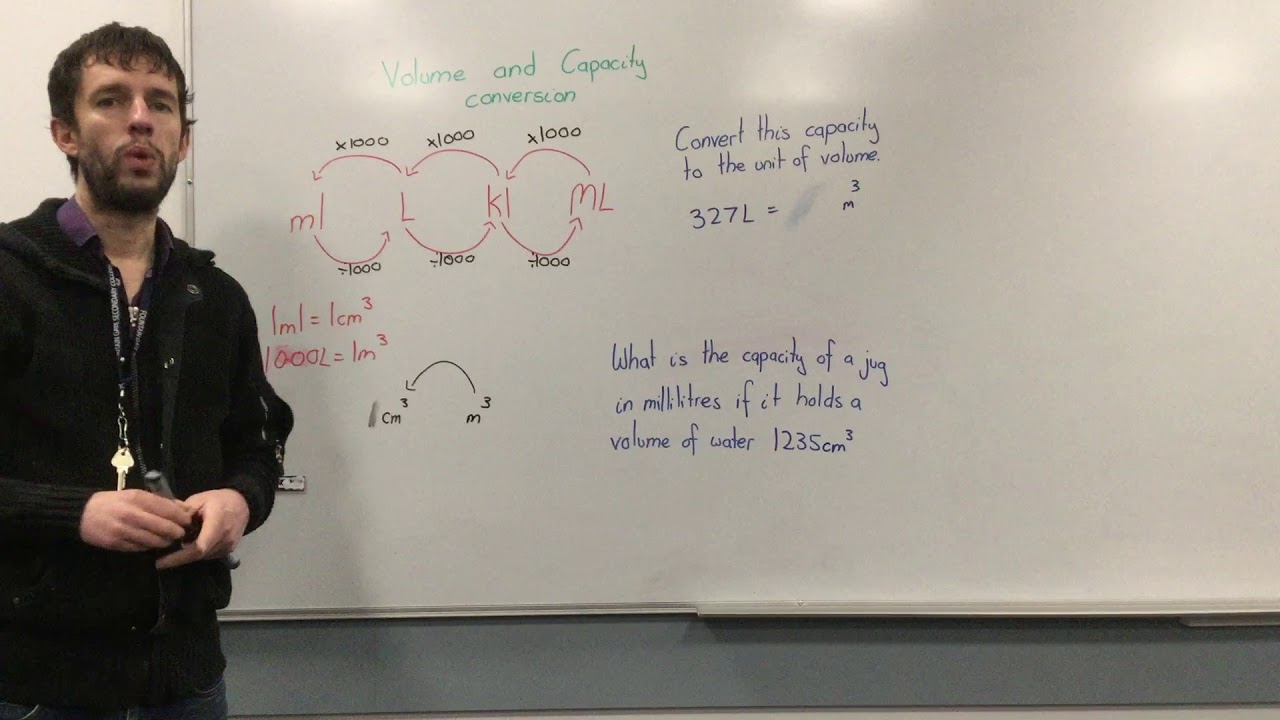 Volume and Capacity
conversion
x1000 x1000 x1000
ml L kl ML
÷1000 ÷1000 ÷1000
1ml = 1cm³
1000L = 1m³
cm³ m³
Convert this capacity
to the unit of volume.
327L = m³
What is the capacity of a jug
in millilitres if it holds a
volume of water 1235cm³